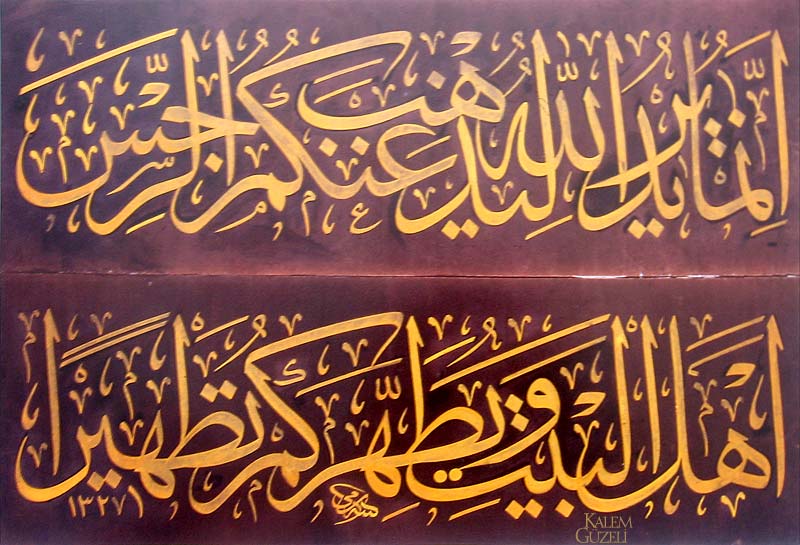 إِنَّمَا يُرِيدُ اللَّهُ لِيُذْهِبَ عَنْكُمُ الرِّجْسَ
أَهْلَ الْبَيْتِ وَيُطَهِّرَكُمْ تَطْهِيرًا
١٣٢٧
KALEM
GÜZELİ